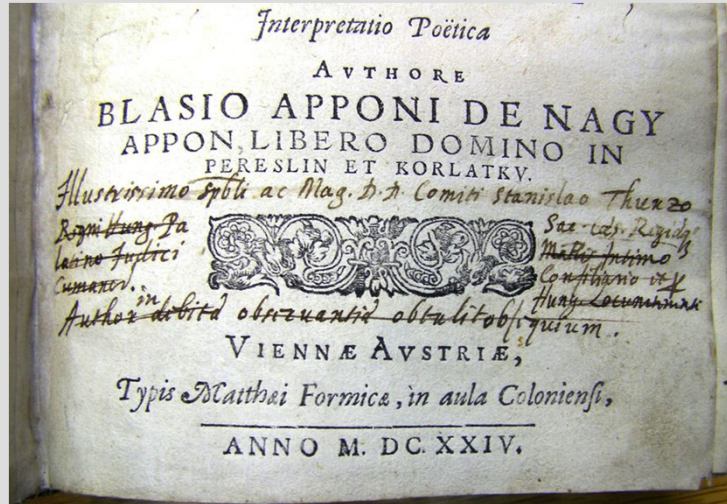 Interpretatio Poëtica
AVTHORE
BLASIO APPONI DE NAGY
APPON, LIBERO DOMINO IN
PERESLIN ET KORLATKV.
Illustrissimo Spbli ac Mag. D. D. Comiti Stanislao Thurzo
Regni Hung. Pa
latino Judici
Cumanor.
Sac. Cæs. Regiæq
Mattis Intimo
Consiliario et p
Hung. Locumten
Author in debitã obseruantiẽ obtulit obsequium.
VIENNÆ AVSTRIÆ,
Typis Matthæi Formicæ, in aula Coloniensi,
ANNO M. DC. XXIV.